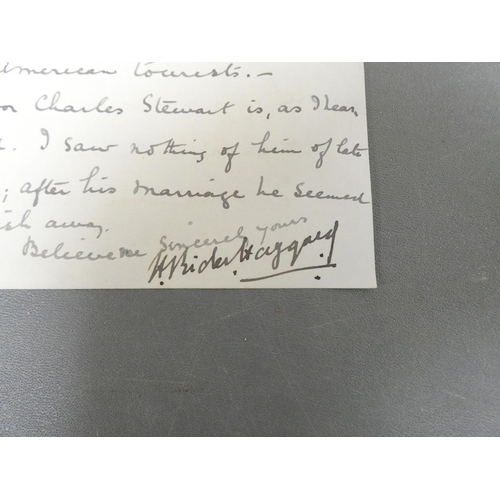 American tourists. —
or Charles Stewart is, as I hear,
. I saw nothing of him of late
; after his marriage he seemed
ish away.
Believe me Sincerely yours
H Rider Haggard